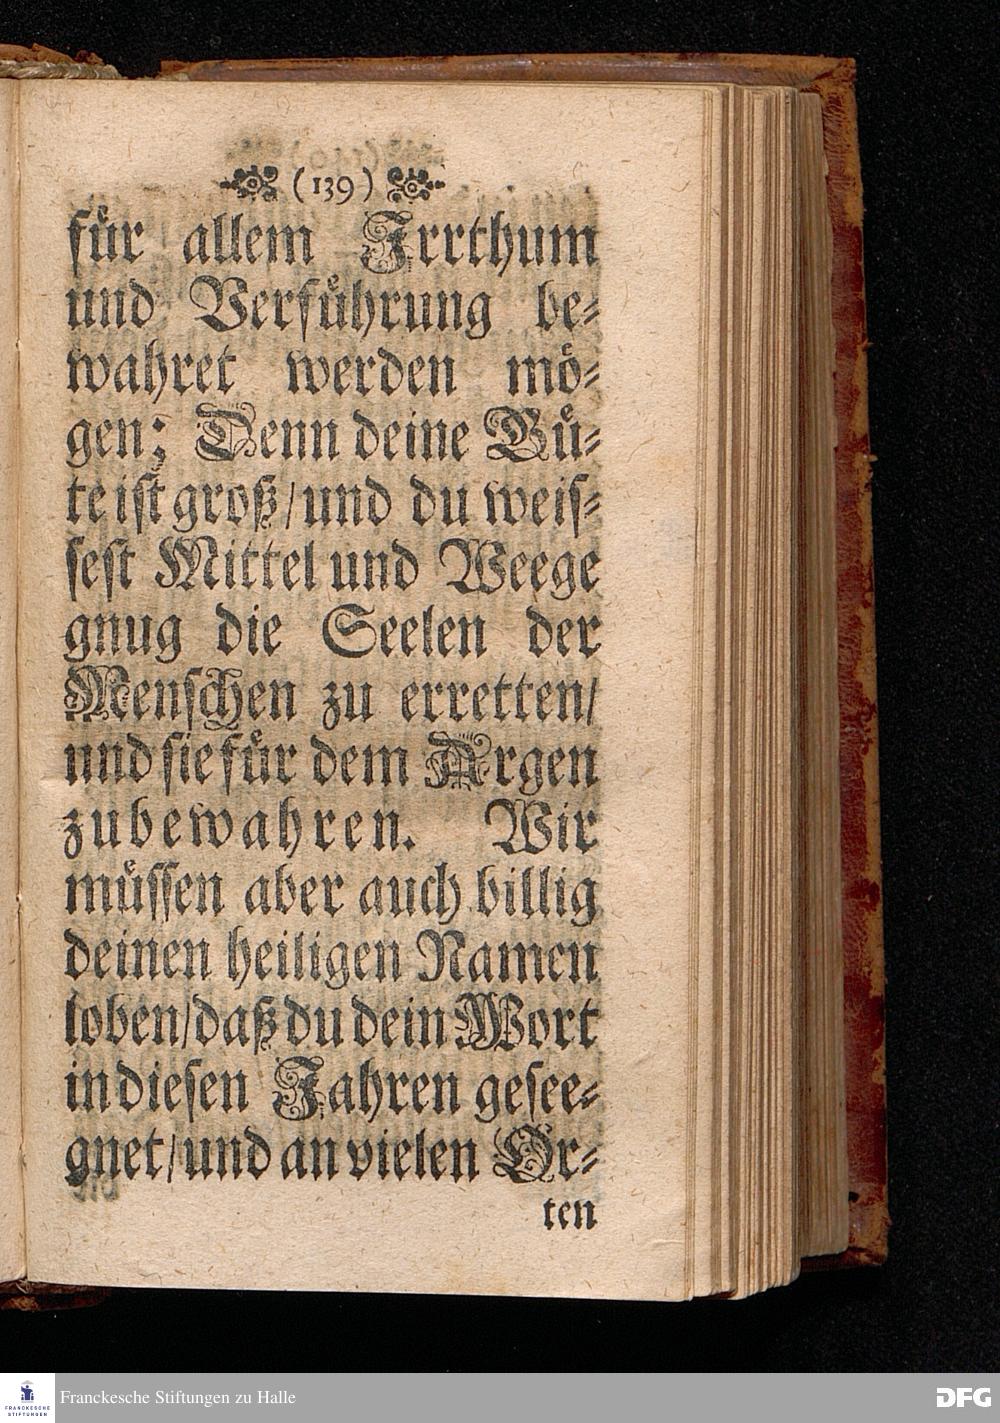 (139)
fuͤr allem Irrthum
und Verfuͤhrung be⸗
wahret werden moͤ⸗
gen; Denn deine Guͤ⸗
te ist groß/ und du weis⸗
sest Mittel und Weege
gnug die Seelen der
Menschen zu erretten/
und sie fuͤr dem Argen
zubewahren. Wir
muͤssen aber auch billig
deinen heiligen Namen
loben/ daß du dein Wort
in diesen Jahren gesee⸗
gnet/ und an vielen Or⸗
ten
FRANCKESCHE
STIFTUNGEN
Franckesche Stiftungen zu Halle
DFG